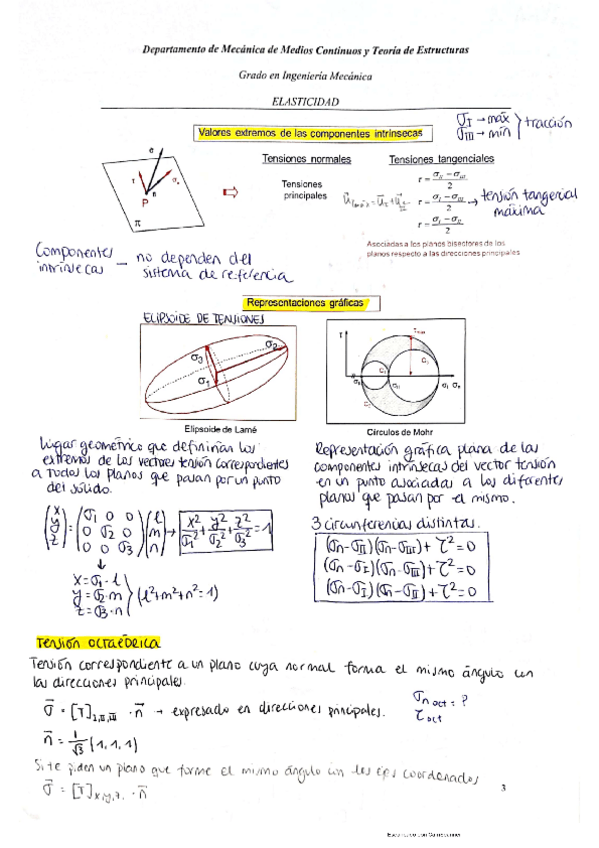 Departamento de Mecánica de Medios Continuos y Teoría de Estructuras
Grado en Ingeniería Mecánica
ELASTICIDAD
σI → máx
σIII → mín
tracción
Valores extremos de las componentes intrínsecas
Tensiones normales
Tensiones tangenciales
Tensiones
principales
τ = (σII − σIII)/2
τ = (σI − σIII)/2 → tensión tangencial
máxima
τ = (σI − σII)/2
σ
τ
n
σn
P
π
Asociadas a los planos bisectores de los
planos respecto a las direcciones principales
Componentes
intrínsecas — no dependen del
sistema de referencia
Representaciones gráficas
ELIPSOIDE DE TENSIONES
σ3
σ2
σ1
τ
τmax
C1
C2
C3
σIII
σII
σI
σn
Elipsoide de Lamé
Círculos de Mohr
Lugar geométrico que definirían los
extremos de los vectores tensión correspondientes
a todos los planos que pasan por un punto
del sólido.
Representación gráfica plana de las
componentes intrínsecas del vector tensión
en un punto asociadas a los diferentes
planos que pasan por el mismo.
(x y z) = (σ1 0 0 / 0 σ2 0 / 0 0 σ3) (l m n) → x²/σ1² + y²/σ2² + z²/σ3² = 1
x = σ1 · l
y = σ2 · m
z = σ3 · n
(l²+m²+n²=1)
3 circunferencias distintas.
(σn-σII)(σn-σIII)+τ²=0
(σn-σI)(σn-σIII)+τ²=0
(σn-σI)(σn-σII)+τ²=0
Tensión octaédrica
Tensión correspondiente a un plano cuya normal forma el mismo ángulo con
las direcciones principales.
σ⃗ = [T]I,II,III · n⃗ → expresado en direcciones principales.
σn oct = ?
τoct
n⃗ = 1/√3 (1,1,1)
Si te piden un plano que forme el mismo ángulo con los ejes coordenados
σ⃗ = [T]x,y,z · n⃗
3